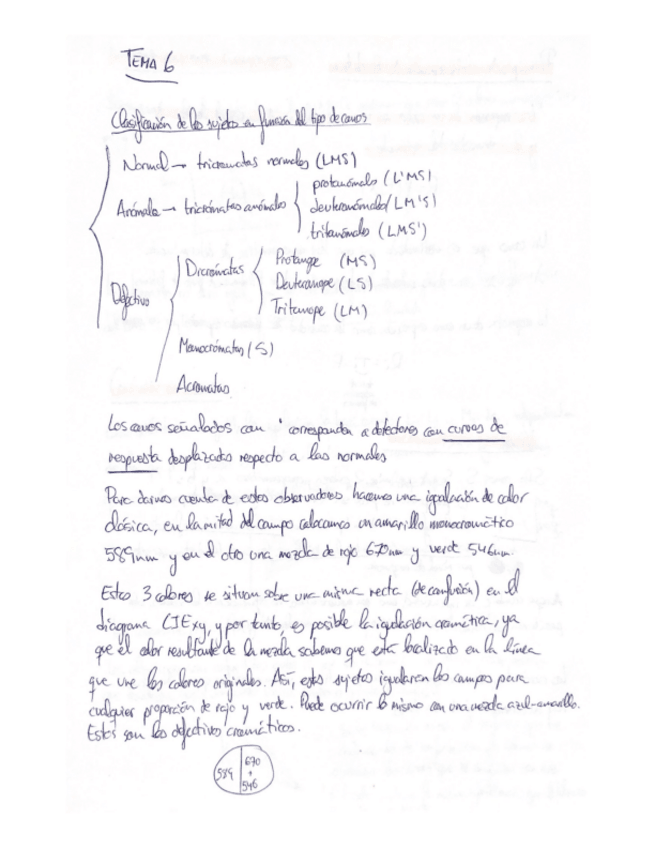 TEMA 6
Clasificación de los sujetos en función del tipo de conos
Normal → tricromatas normales (LMS)
Anómalo → tricrómatas anómalos
protanómalo (L'MS)
deuteranómalo (LM'S)
tritanómalo (LMS')
Defectivo
Dicrómatas
Protanope (MS)
Deuteranope (LS)
Tritanope (LM)
Monocrómatas (S)
Acromatas
Los conos señalados con ' corresponden a detectores con curvas de
respuesta desplazadas respecto a las normales
Para darnos cuenta de estos observadores hacemos una igualación de color
clásica, en la mitad del campo colocamos un amarillo monocromático
589nm y en el otro una mezcla de rojo 670nm y verde 546nm.
Estos 3 colores se sitúan sobre una misma recta (de confusión) en el
diagrama CIExy, y por tanto, es posible la igualación cromática, ya
que el color resultante de la mezcla sabemos que está localizado en la línea
que une los colores originales. Así, estos sujetos igualaran los campos para
cualquier proporción de rojo y verde. Puede ocurrir lo mismo con una mezcla azul-amarillo.
Estos son los defectivos cromáticos.
589
670
+
546